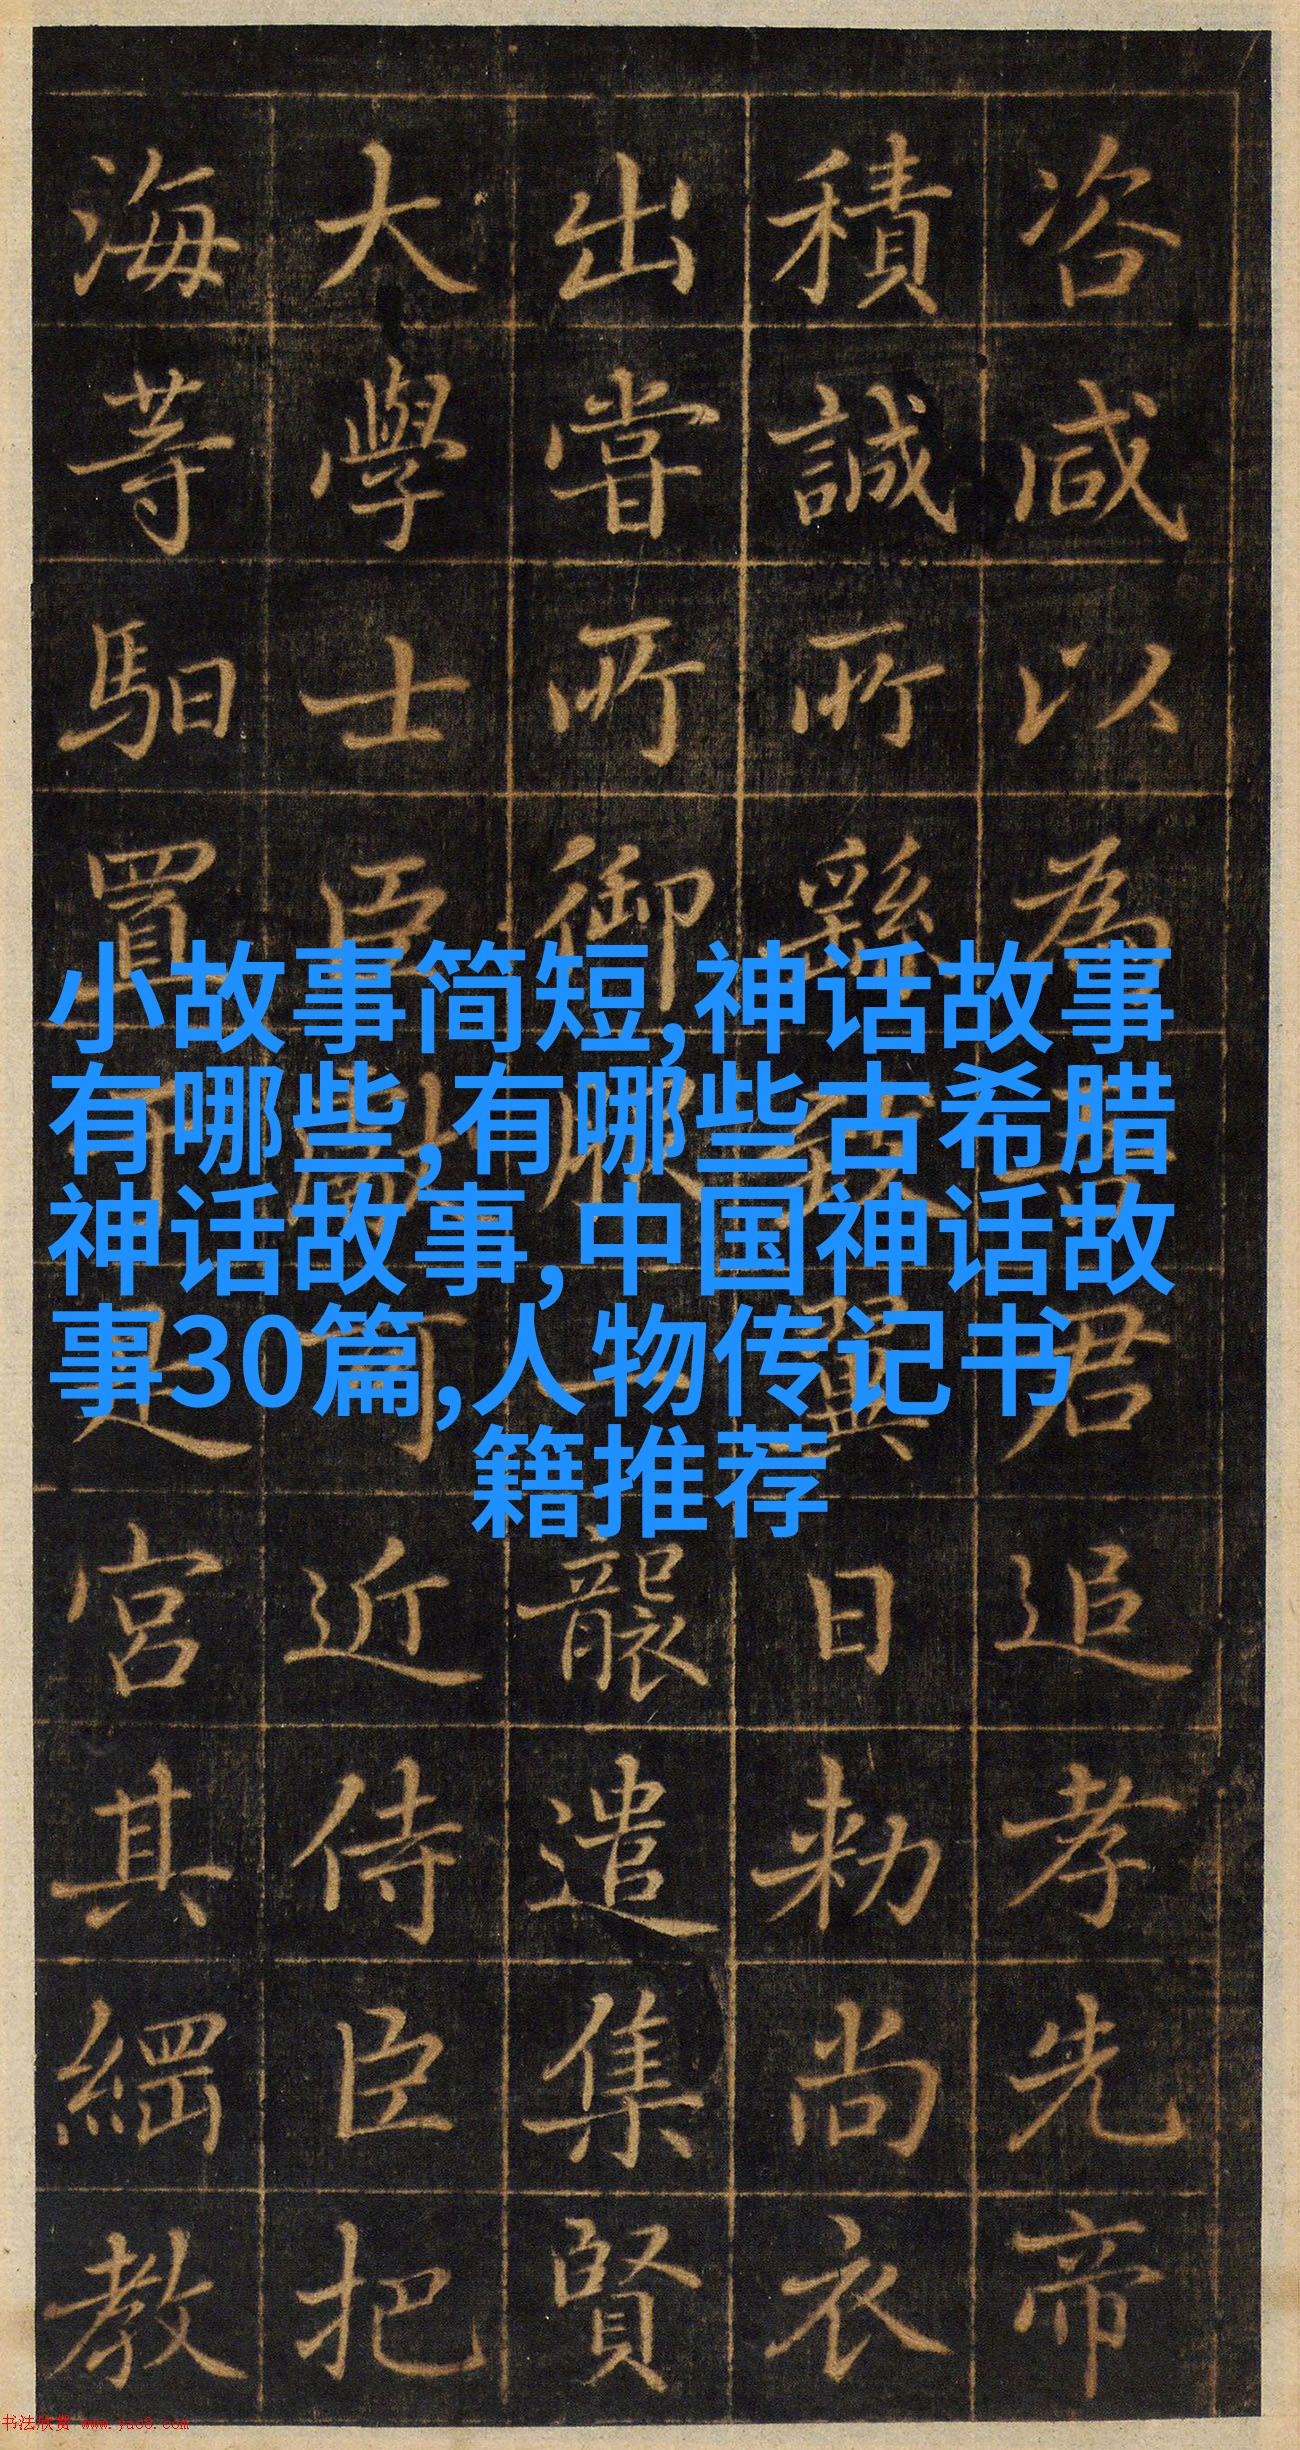 小故事简短,神话故事
有哪些,有哪些古希腊
神话故事,中国神话故
事30篇,人物传记书
籍推荐
咨咸以為君追孝先帝
積誠所繇致翼日勑尚衣
出嘗所御服一襲遣集賢
大學士臣可近侍臣把
海等馹置是宮其綱教
书法欣赏 www.yac8.com